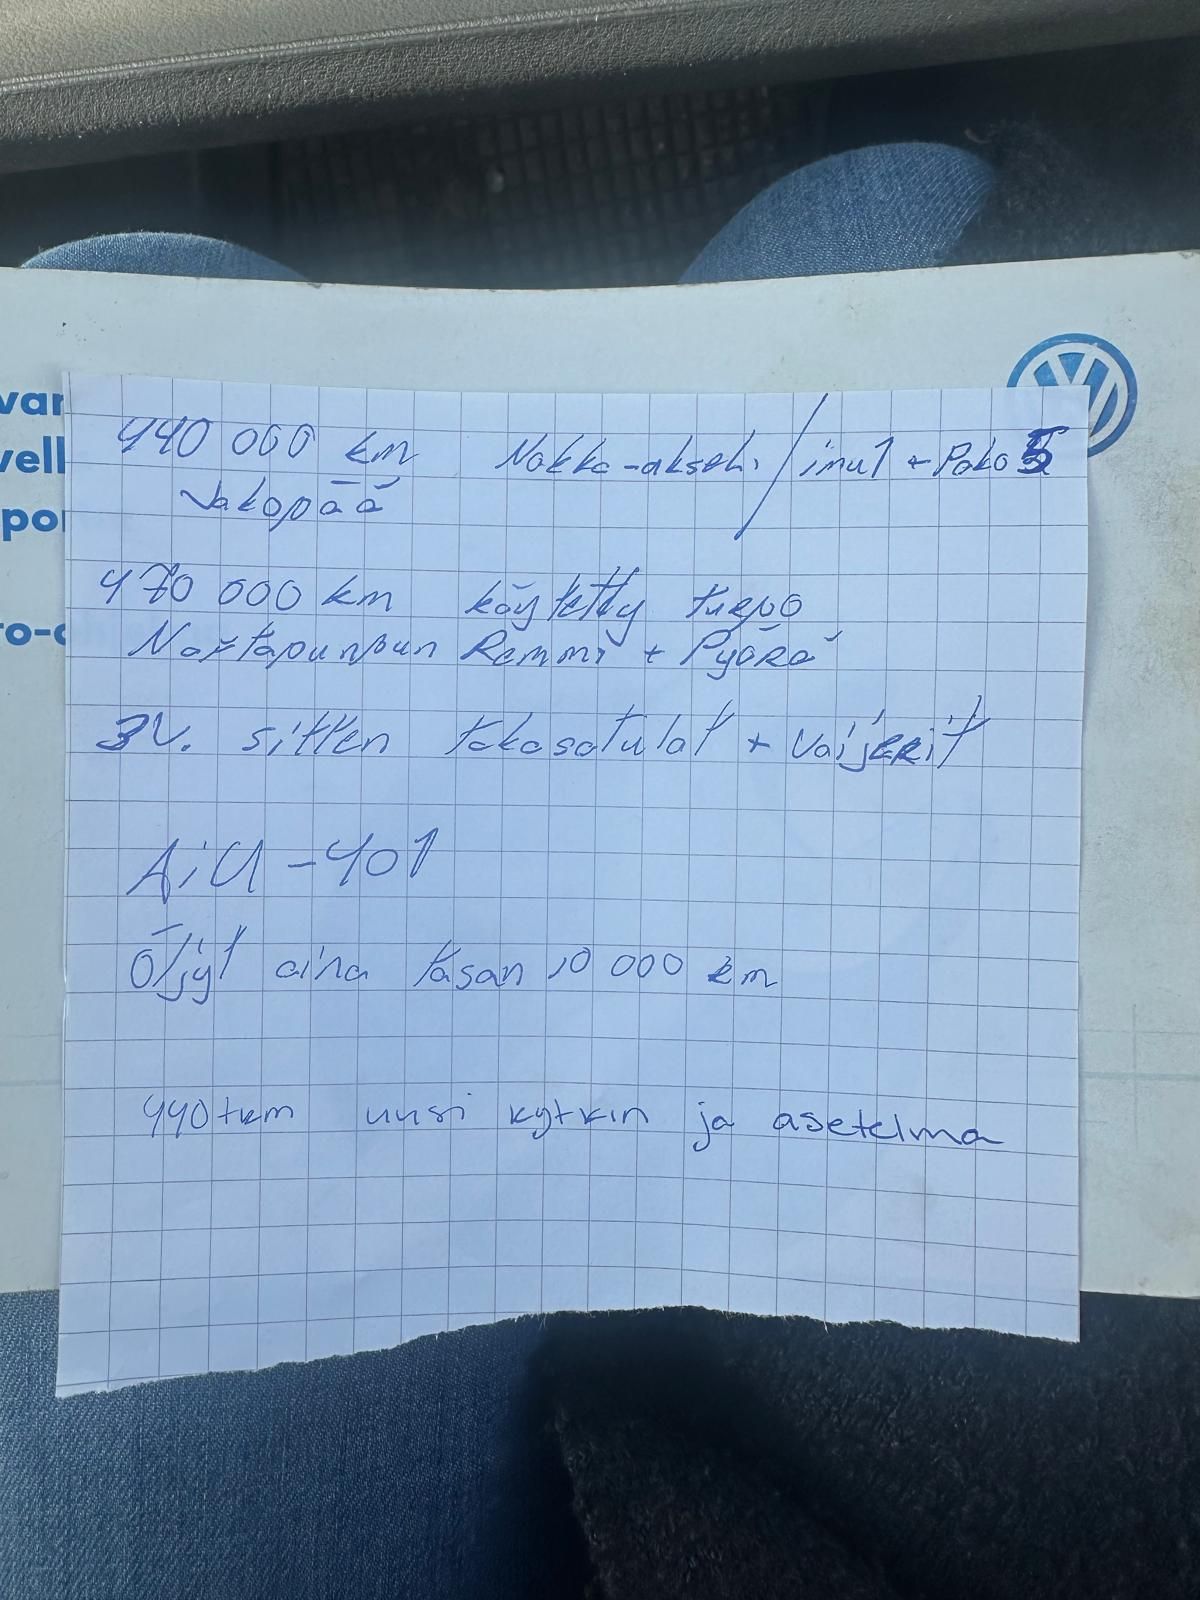 var
vell
por
to-
440 000 km Nokka-akseli / imut + Pako 5
Jakopää
470 000 km käytetty turpo
Nostapunpun Remmi + Pyörä
3v. sitten takasatulat + vaijerit
AiU-401
Öljyt aina tasan 10 000 km
440tkm uusi kytkin ja asetelma